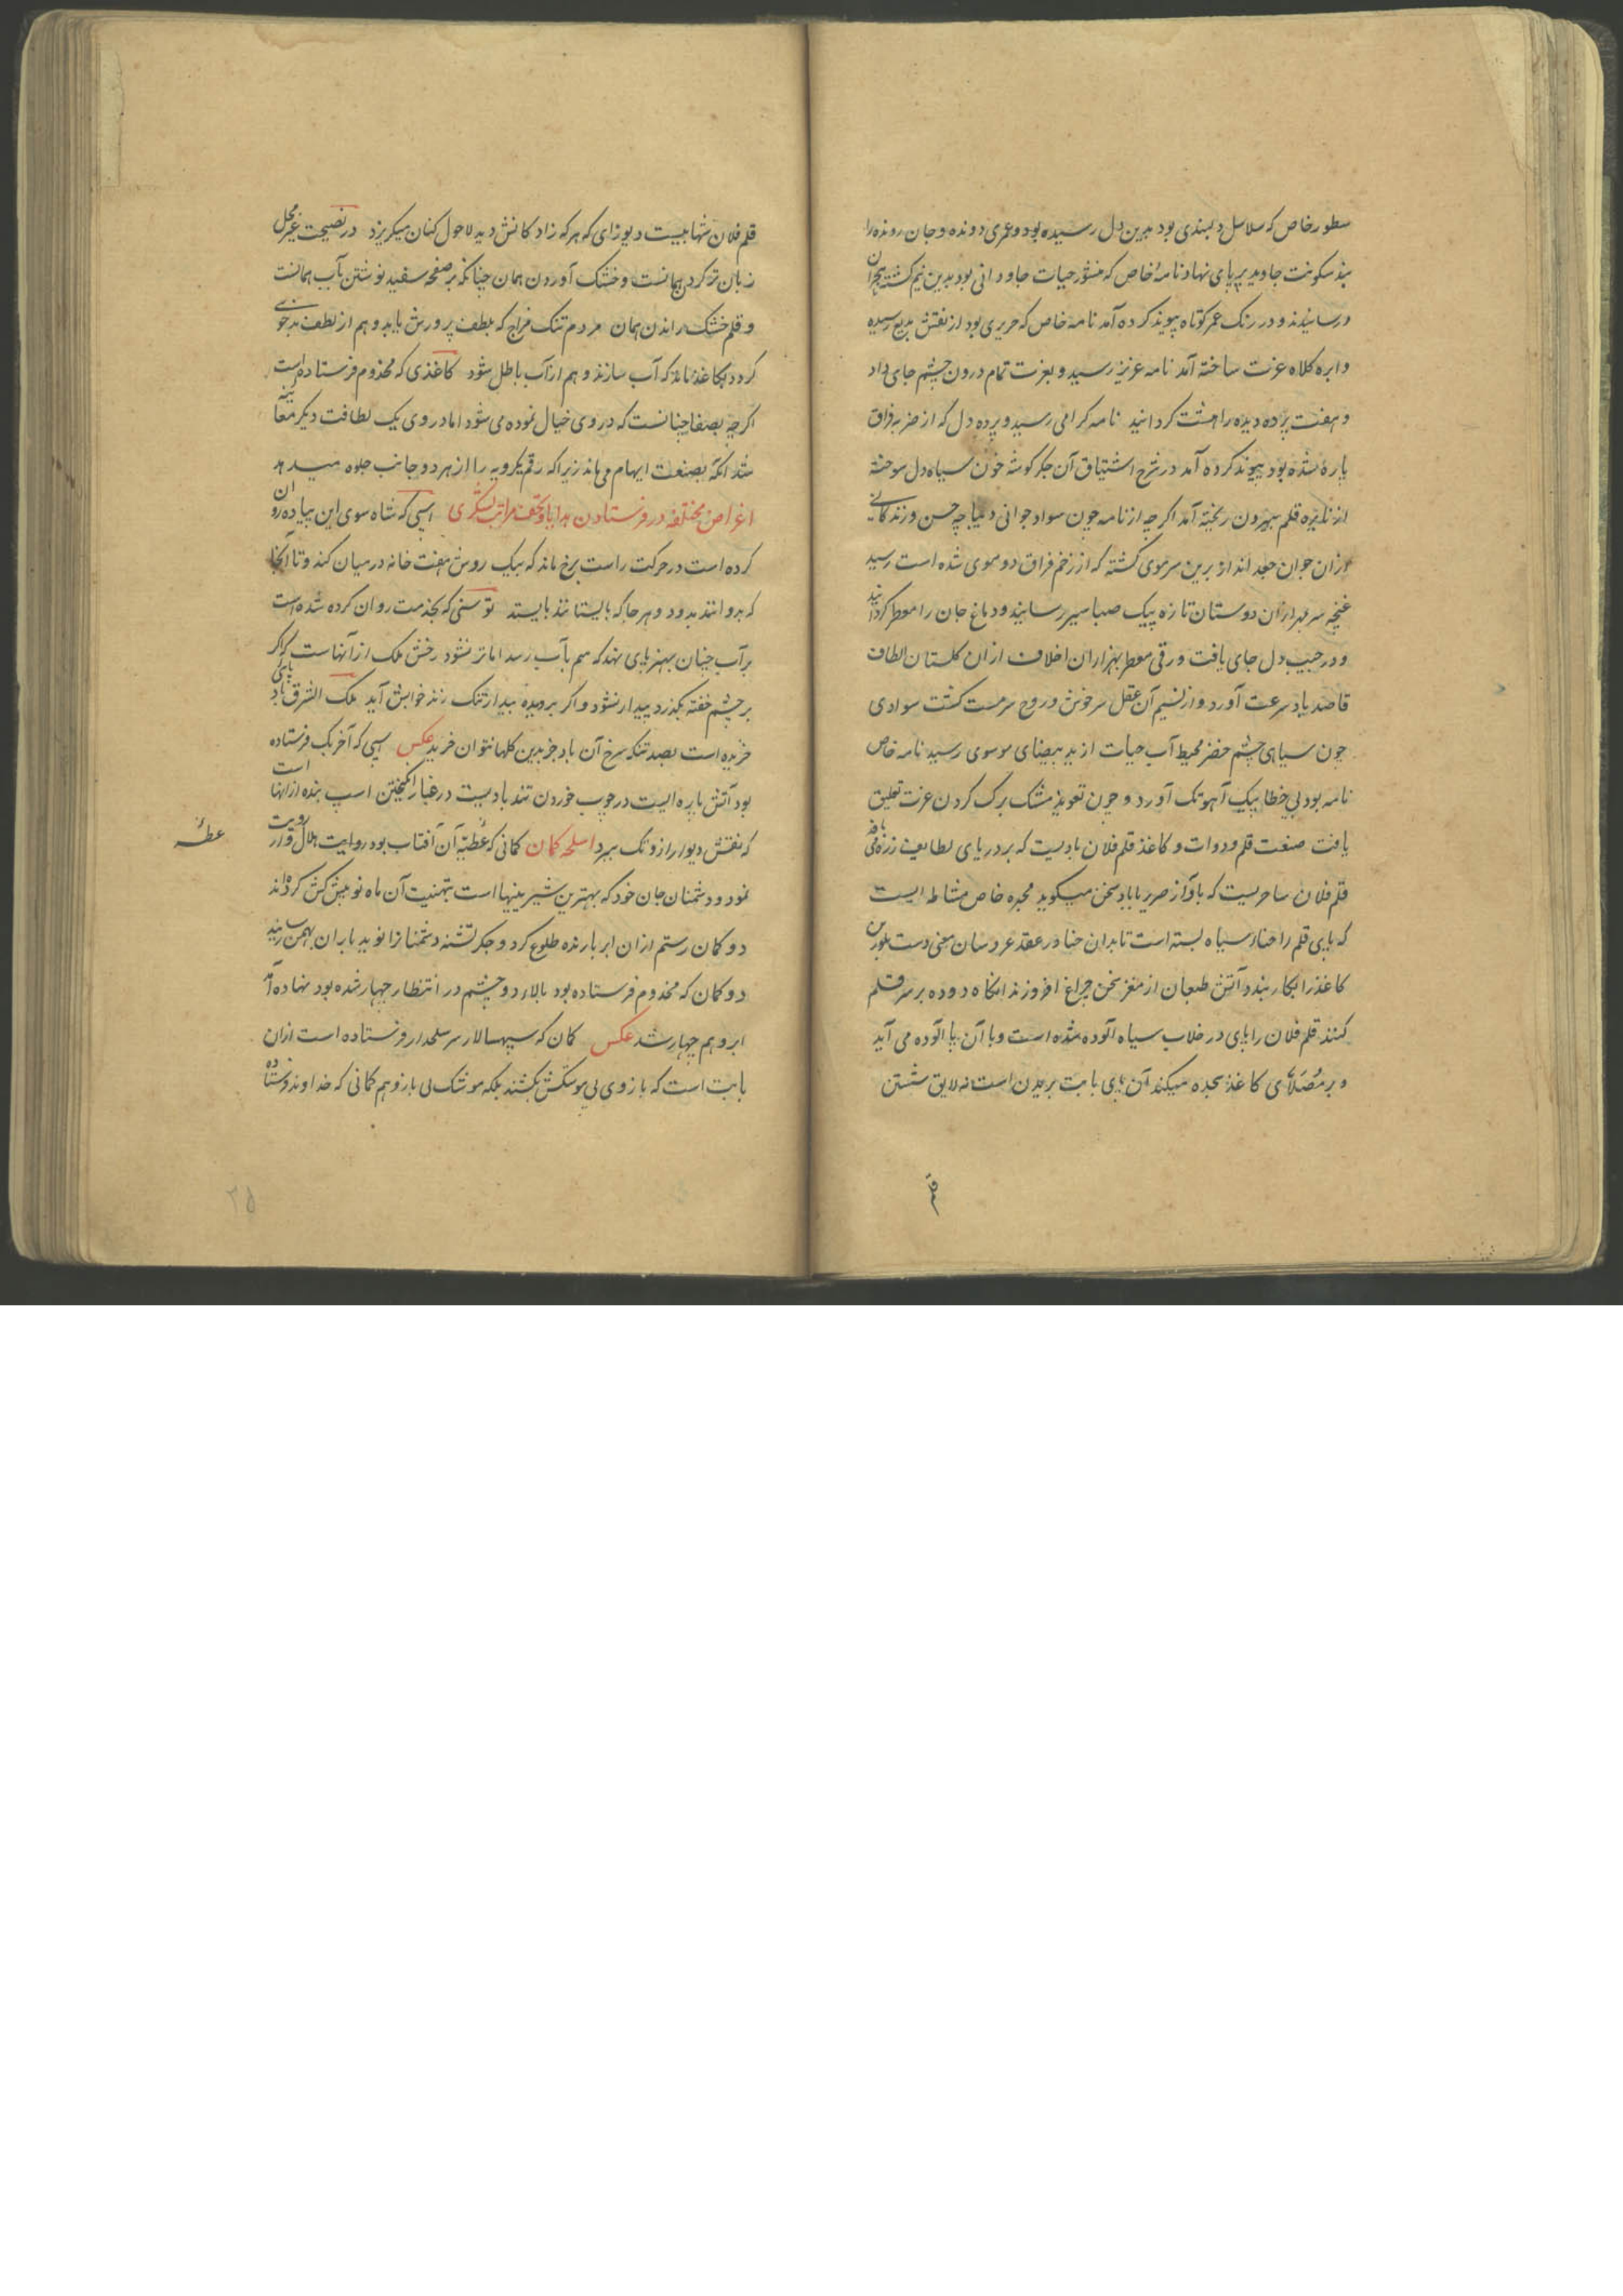 سطور خاص که سلاسل دلبندی بود بدین دل رسیده بود و عمری دونده و جان رونده را
بند سکونت جاوید بر پای نهاد نامهٔ خاص که منشور حیات جاودانی بود بدین نیم کشته هجران
رسانیدند و در رنک عمر کوتاه پیوند کرده آمد نامه خاص که حریری بود از نقش بدیع رسیده
و ابره کلاه عزت ساخته آمد نامه عزیز رسید و بعزت تمام درون چشم جای داد
و هفت پرده دیده را هشت کردانید نامه کرامی رسید و پرده دل که از ضربه فراق
پاره شده بود پیوند کرده آمد در شرح اشتیاق آن جکر کوشه خون سیاه دل سوخته
از نایزه قلم بیرون ریخته آمد اکر چه از نامه چون سواد جوانی دیباچه حسن و زندکانی
ازان جوان جعد انداز برین سرموی کشته که از زخم فراق دو موی شده است رسید
غنچه سر بهر ازان دوستان تازه پیک صبا سیر رسانید و دماغ جان را معطر کردانید
و در جیب دل جای یافت ورقی معطر بهزاران اخلاف ازان کلستان الطاف
قاصد باد سرعت آورد و از نسیم آن عقل سرخوش و روح سرمست کشت سوادی
چون سیاهی چشم خضر محیط آب حیات از ید بیضای موسوی رسید نامه خاص
نامه بود بی خطا پیک آهو تک آورد و چون تعویذ مشک برک کردن عزت تعلیق
یافت صنعت قلم و دوات و کاغذ قلم فلان بادیست که بر دریای لطایف زره می بافد
قلم فلان ساحریست که باواز صریر باباد سخن میکوید محبره خاص مشاطه ایست
که پای قلم را حناء سیاه بسته است تا بدان حنا در عقد عروسان معنی دست بلورین
کاغذ را نکار بندد آتش طبعان از مغز سخن چراغ افروزند انکاه دوده بر سر قلم
کنند قلم فلان را پای در خلاب سیاه آلوده شده است و با آن پا آلوده می آید
و بر مُصَلّای کاغذ سجده میکند آن پای بابت بریدن است نه لایق شستن
قلم
قلم فلان شهابیست دیوزای که هرکه زاد کانش دید لاحول کنان میکریزد در نصیحت غیر محل
زبان تر کردن همانست و خشک آوردن همان چنانکه بر صفحه سفید نوشتن بآب همانست
و قلم خشک راندن همان مردم تنک مزاج که بلطف پرورش یابد و هم از لطف بدخوی
کردد بکاغذ ماند که آب سازند و هم از آب باطل شود کاغذی که مخذوم فرستاده است
اکرچه بصفا چنانست که در وی خیال نموده می شود اما در وی یک لطافت دیکر معاینه
شد انکه بصنعت ایهام می ماند زیرا که رقم یکرویه را از هر دو جانب جلوه میدهد
اغراض مختلفه در فرستادن هدایا و تحف مراتب لشکری اسپی که شاه سوی این پیاده روان
کرده است در حرکت راست برخ ماند که بیک روش هفت خانه در میان کند و تا آنجا
که بدوانند بدود و هر جا که بایستانند بایستد توسنی که بخدمت روان کرده شده است
بر آب چنان بهنر پای نهد که سم بآب رسد اما تر نشود رخش ملک از آنهاست که اکر
بر چشم خفته بکذرد بیدار نشود و اکر بر دیده بیدار تنک زند خوابش آید ملک الشرق باد پائی
خریده است بصد تنکه سرخ آن باد جز بدین کلها نتوان خرید عکس اسپی که آخربک فرستاده
بود آتش پاره ایست در چوب خوردن تند بادیست در غبار انکیختن اسپ بنده از انها است
که نقش دیوار ازو تک ببرد اسلحه کمان کمانی که عُطیّه آن آفتاب بود روایت هلال وار رویت
عطه
نمود و دشمنان جان خود که بهترین شیرینیها است بتهنیت آن ماه نو پیش کش کردند
دو کمان رستم ازان ابر بارنده طلوع کرد و جکر تشنه دشمنانرا نوید باران بهمن رسانید
دو کمان که مخذوم فرستاده بود بالاء دو چشم در انتظار چهار شده بود نهاده آمد
ابرو هم چهار شد عکس کمان که سپهسالار سر سلحدار فرستاده است ازان
بابت است که بازوی بی موسکش بکشند بلکه موشک بی بازو هم کمانی که خداوند فرستاده
۲۵